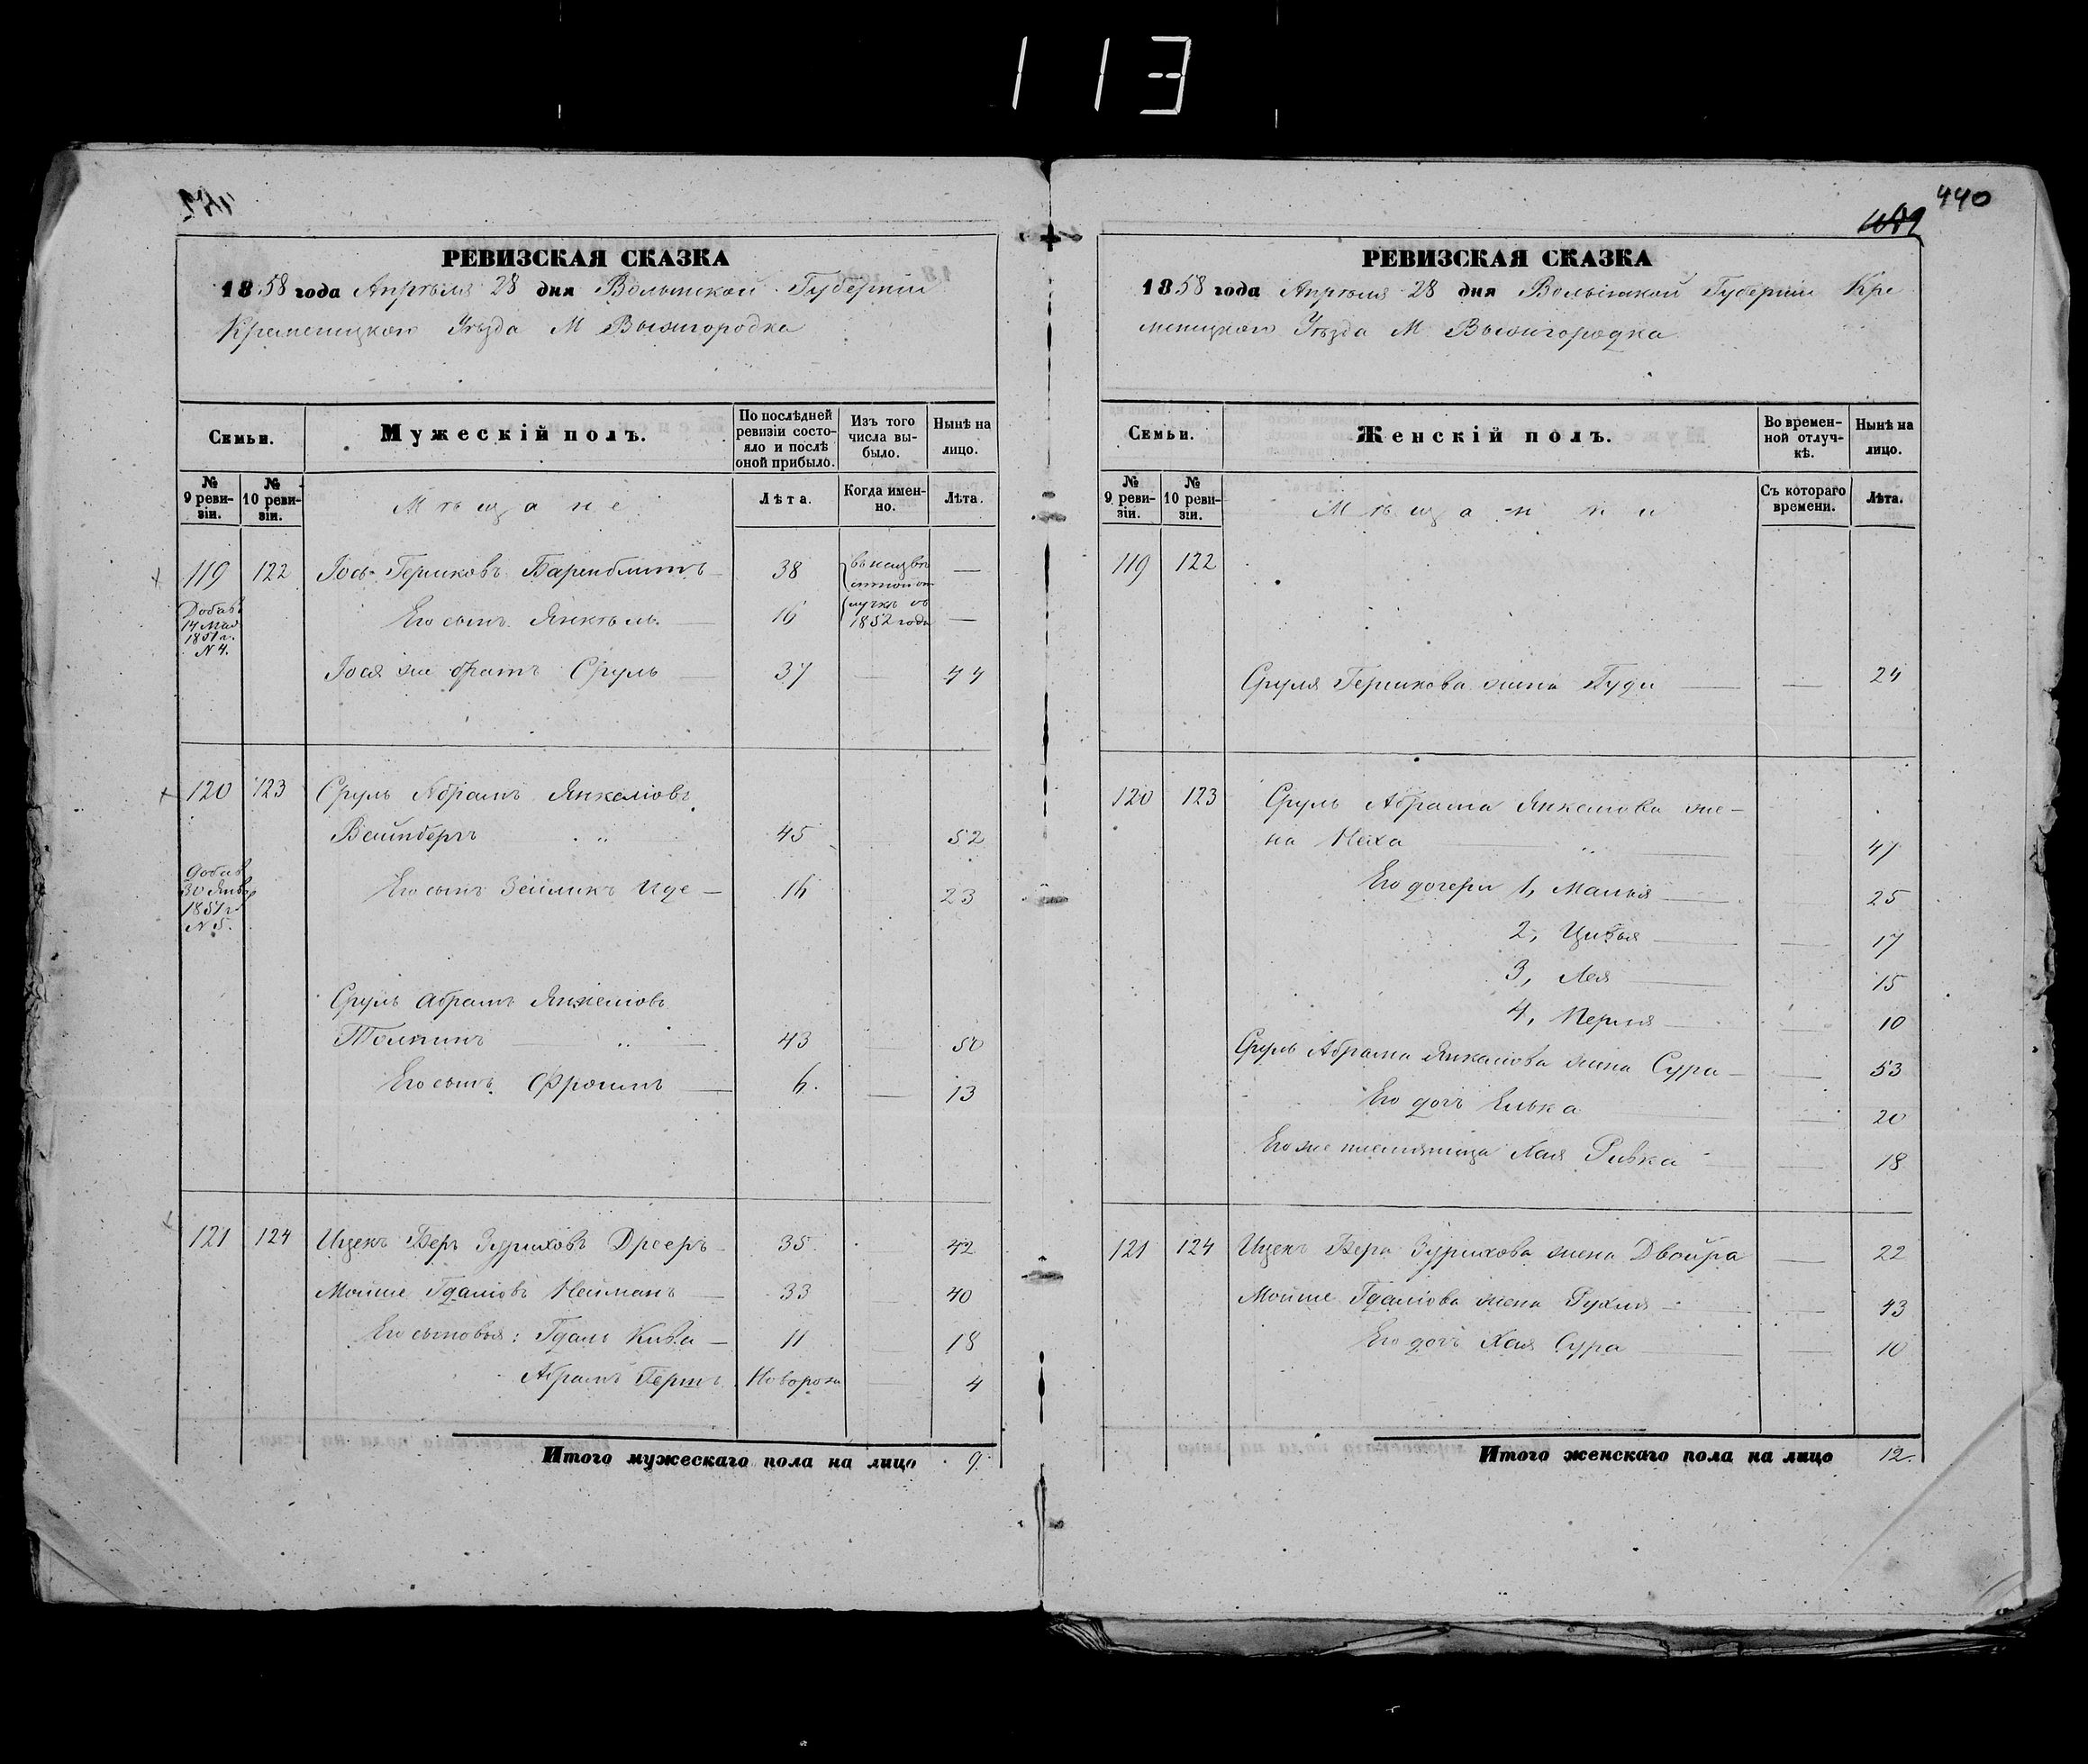 113
РЕВИЗСКАЯ СКАЗКА
1858 года Апрѣля 28 дня Волынской Губерніи
Кременецкого Уѣзда М Вышгородка
Семьи.
Мужескій полъ.
По послѣдней ревизіи состояло и послѣ оной прибыло.
Изъ того числа выбыло.
Нынѣ на лицо.
№ 9 ревизіи.
№ 10 ревизіи.
Мѣщане
Лѣта.
Когда именно.
Лѣта.
119 122 Іось Гершковъ Баренблитъ 38 въ неизвѣстной от —
Добав. 14 Мая 1851 г. N 4.
Его сынъ Янкель 16 лучкѣ съ 1852 года —
Іося же братъ Сруль 37 — 44
120 123 Сруль Абрамъ Янкеліовъ
Вайнбергъ 45 52
Добав. 30 Янва 1851 г N 5.
Его сынъ Зейликъ Иде — 16 23
Сруль Абрамъ Янкеліовъ
43 — 50
Его сынъ Фроимъ — 6. — 13
121 124 Ицекъ Беръ Дрееръ 35 42
Мойше Гдаліовъ Нейманъ 33 40
Его сыновья: Гдаль Кива — 11 18
Абрамъ Гершъ Новорож — 4
Итого мужескаго пола на лицо 9.
440
РЕВИЗСКАЯ СКАЗКА
1858 года Апрѣля 28 дня Волынской Губерніи Кре
менецкого Уѣзда М Вышгородка
Семьи.
Женскій полъ.
Во временной отлучкѣ.
Нынѣ на лицо.
№ 9 ревизіи.
№ 10 ревизіи.
Мѣщанки
Съ котораго времени.
Лѣта.
119 122
Сруля Гершкова жена — — 24
120 123 Сруль Абрама Янкеліова же-
на Неха 47
Его дочери 1, Манья 25
2, Цивья — 17
3, Лея 15
4, Перля — 10
Сруль Абрама Янкеліова жена Сура — 53
Его дочь Елька — 20
Его же племяница Хая Ривка — 18
121 124 Ицекъ Бера жена Двойра — 22
Мойше Гдаліова жена Рухля — 43
Его дочь Хая Сура — 10
Итого женскаго пола на лицо 12.